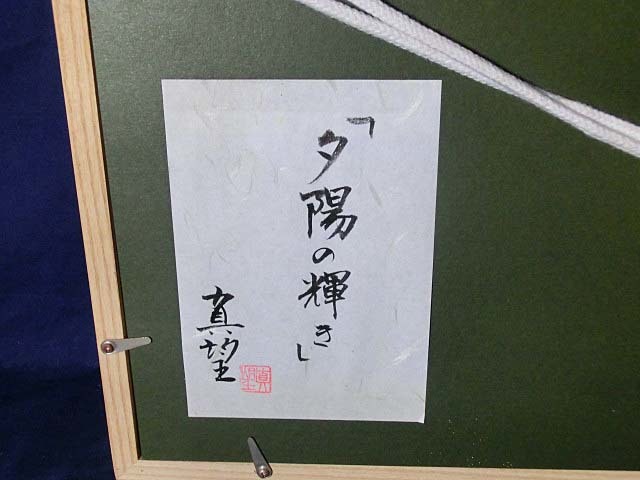 「夕陽の輝き」
真望